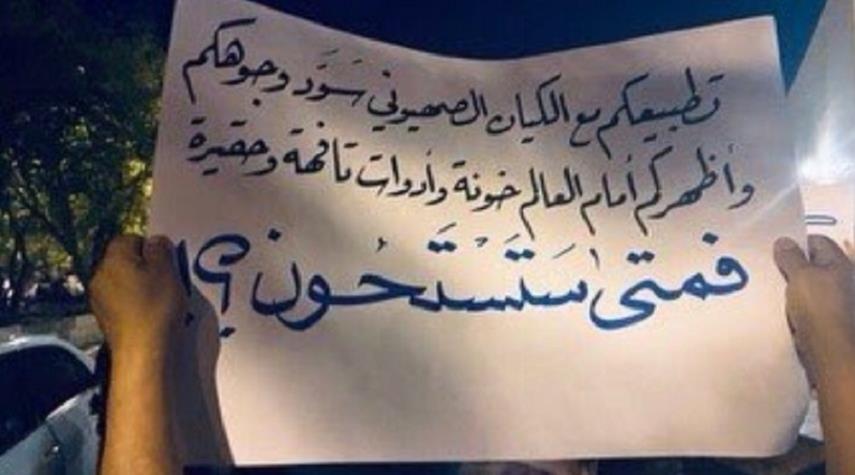 تطبيعكم مع الكيان الصهيوني سَوَّد وجوهكم
وأظهركم أمام العالم خونة وأدوات تافهة وحقيرة
فمتى ستستحون؟!